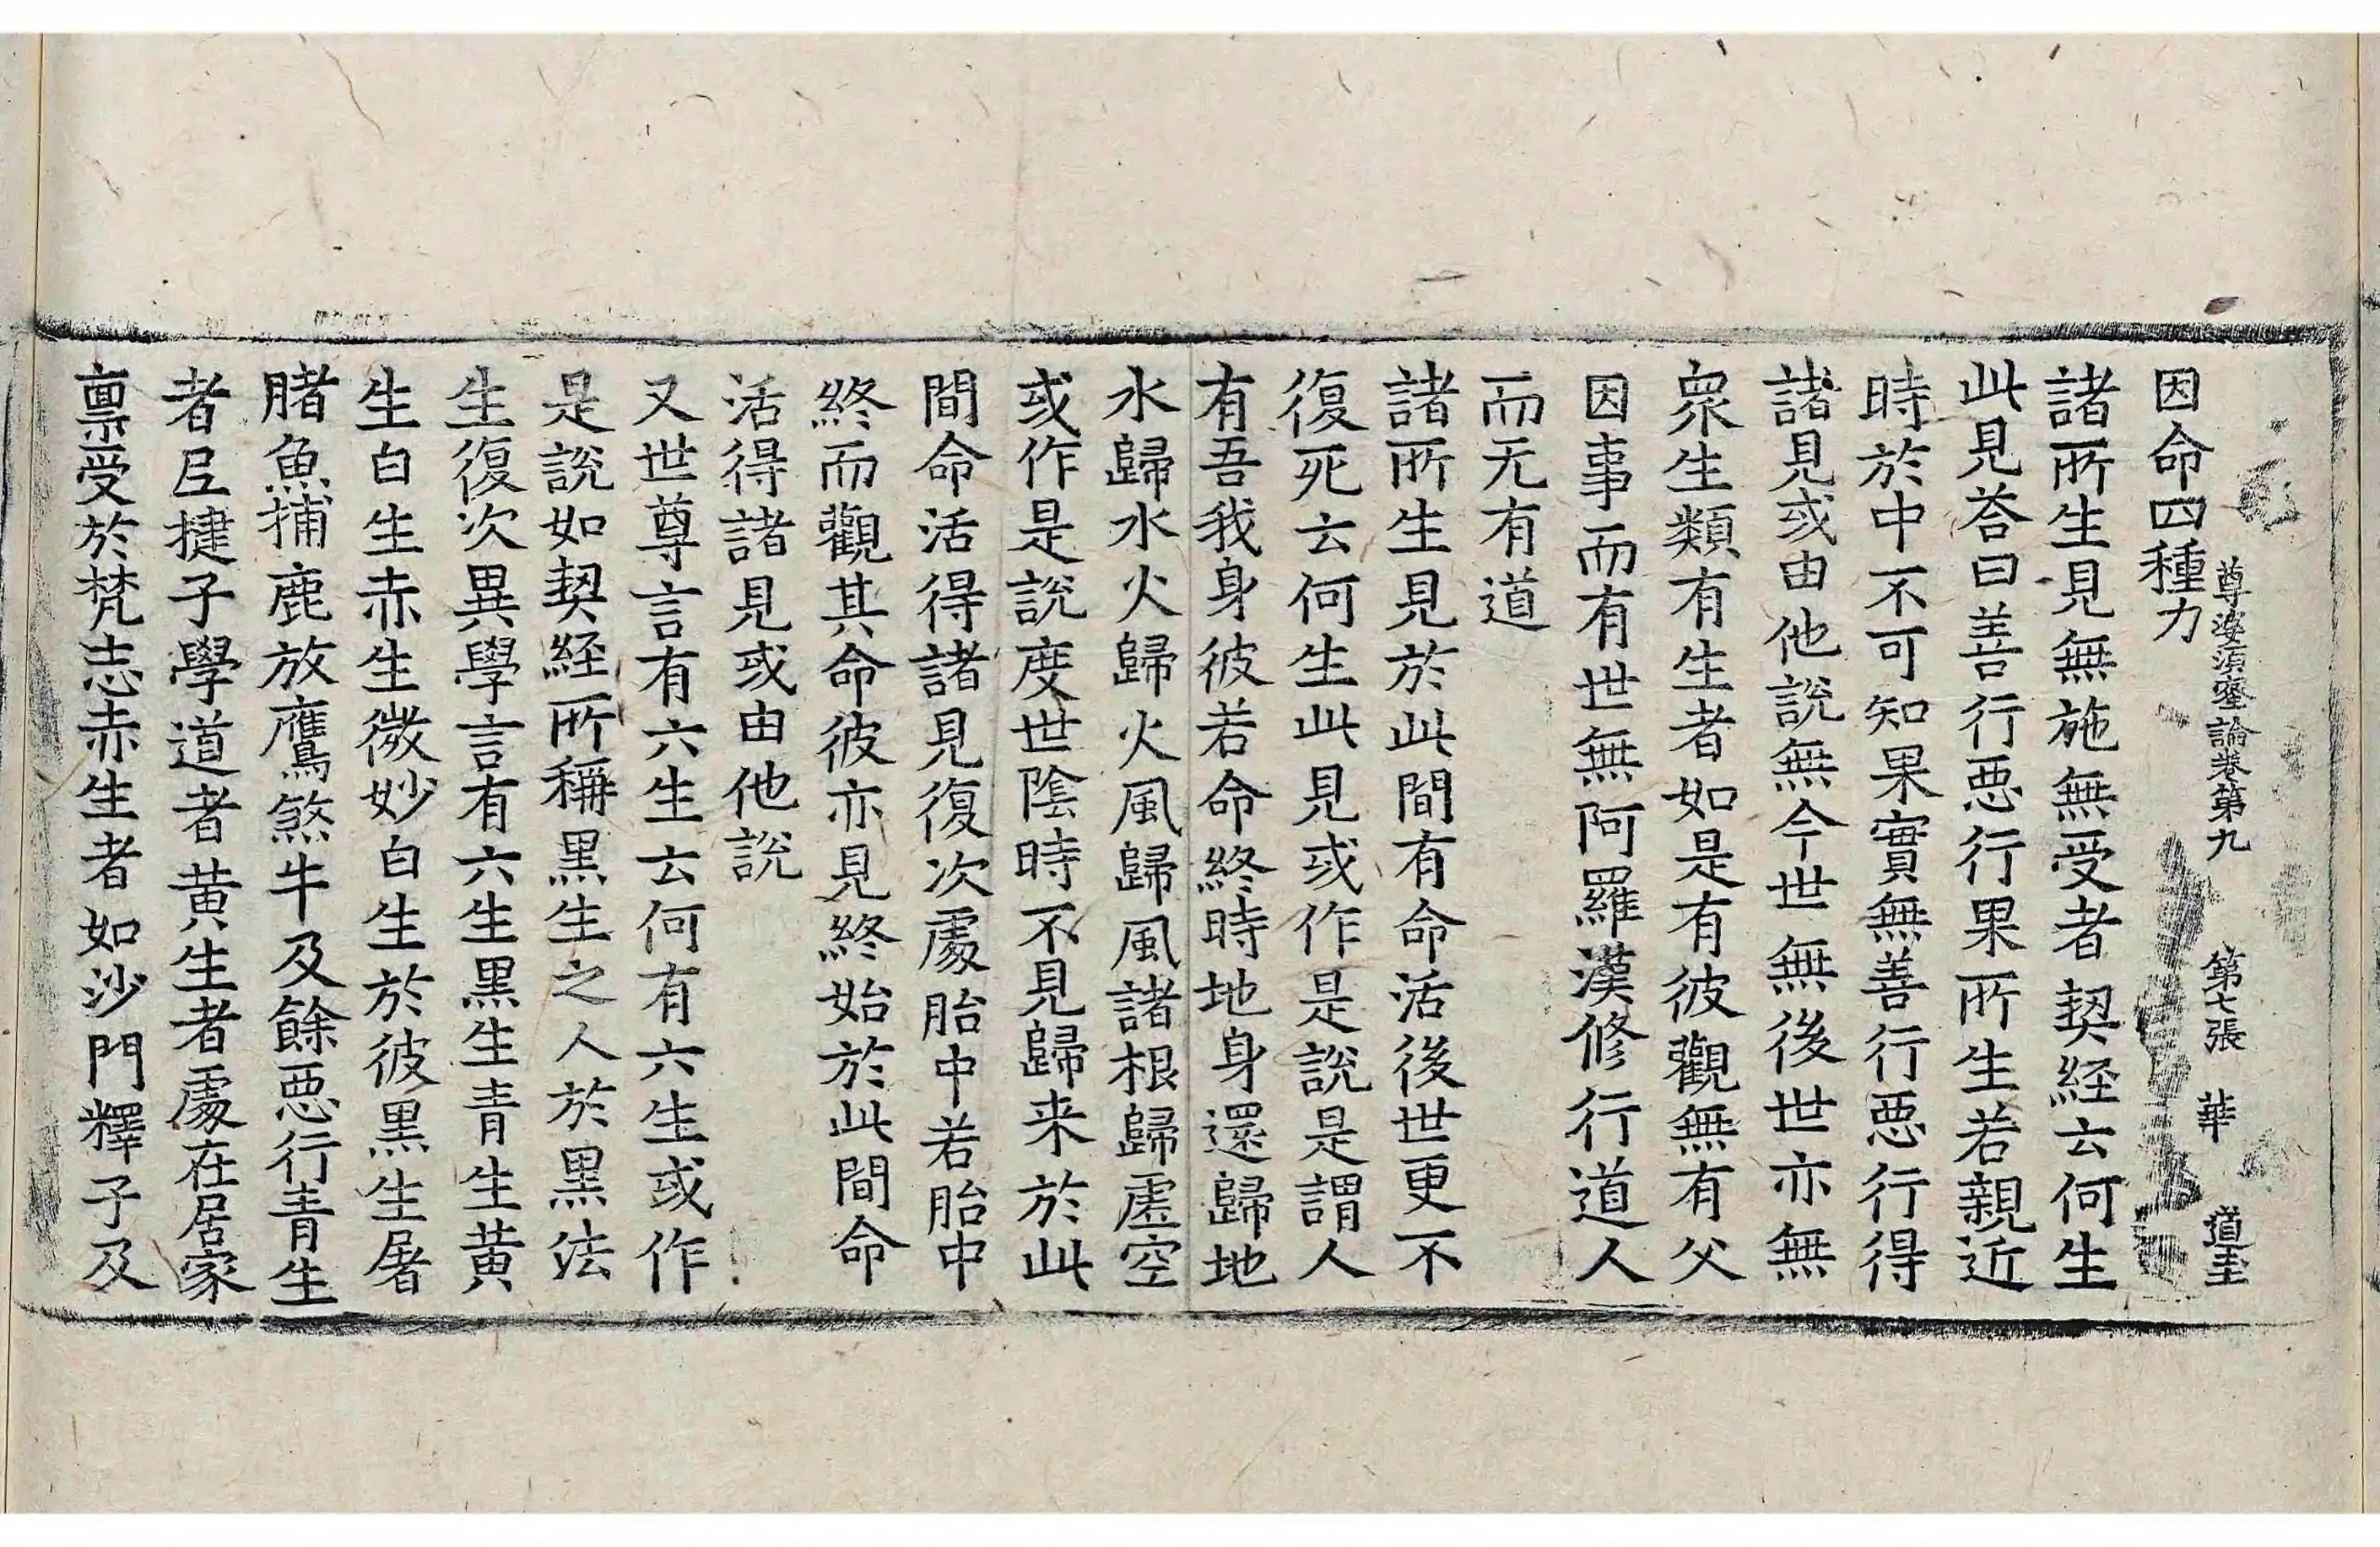 尊婆須蜜論卷第九 第七張 華 道玉
因命四種力
諸所生見無施無受者契経云何生
此見荅曰善行惡行果所生若親近
時於中不可知果實無善行惡行得
諸見或由他說無今世無後世亦無
衆生類有生者如是有彼觀無有父
因事而有世無阿羅漢修行道人
而无有道
諸所生見於此間有命活後世更不
復死云何生此見或作是說是謂人
有吾我身彼若命終時地身還歸地
水歸水火歸火風歸風諸根歸虛空
或作是說度世陰時不見歸来於此
間命活得諸見復次處胎中若胎中
終而觀其命彼亦見終始於此間命
活得諸見或由他說
又世尊言有六生云何有六生或作
是說如契経所稱黑生之人於黑法
生復次異學言有六生黑生青生黄
生白生赤生微妙白生於彼黑生屠
賭魚捕鹿放鷹煞牛及餘惡行青生
者尼揵子學道者黄生者處在居家
禀受於梵志赤生者如沙門釋子及